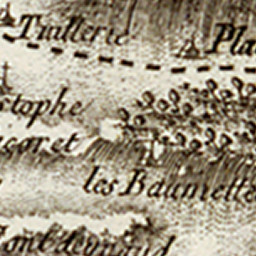 Tuillerie
Pla
stophe
coret
les Baumette